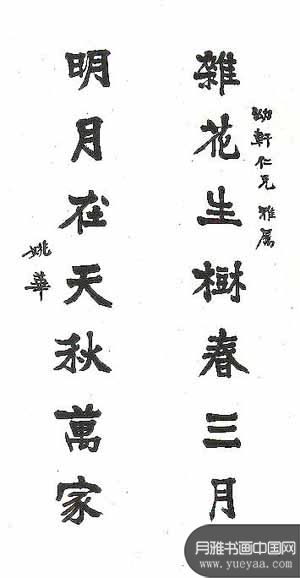 雜花生樹春三月
幼軒仁兄 雅屬
明月在天秋萬家
姚華
月雅书画中国网
www.yueyaa.com